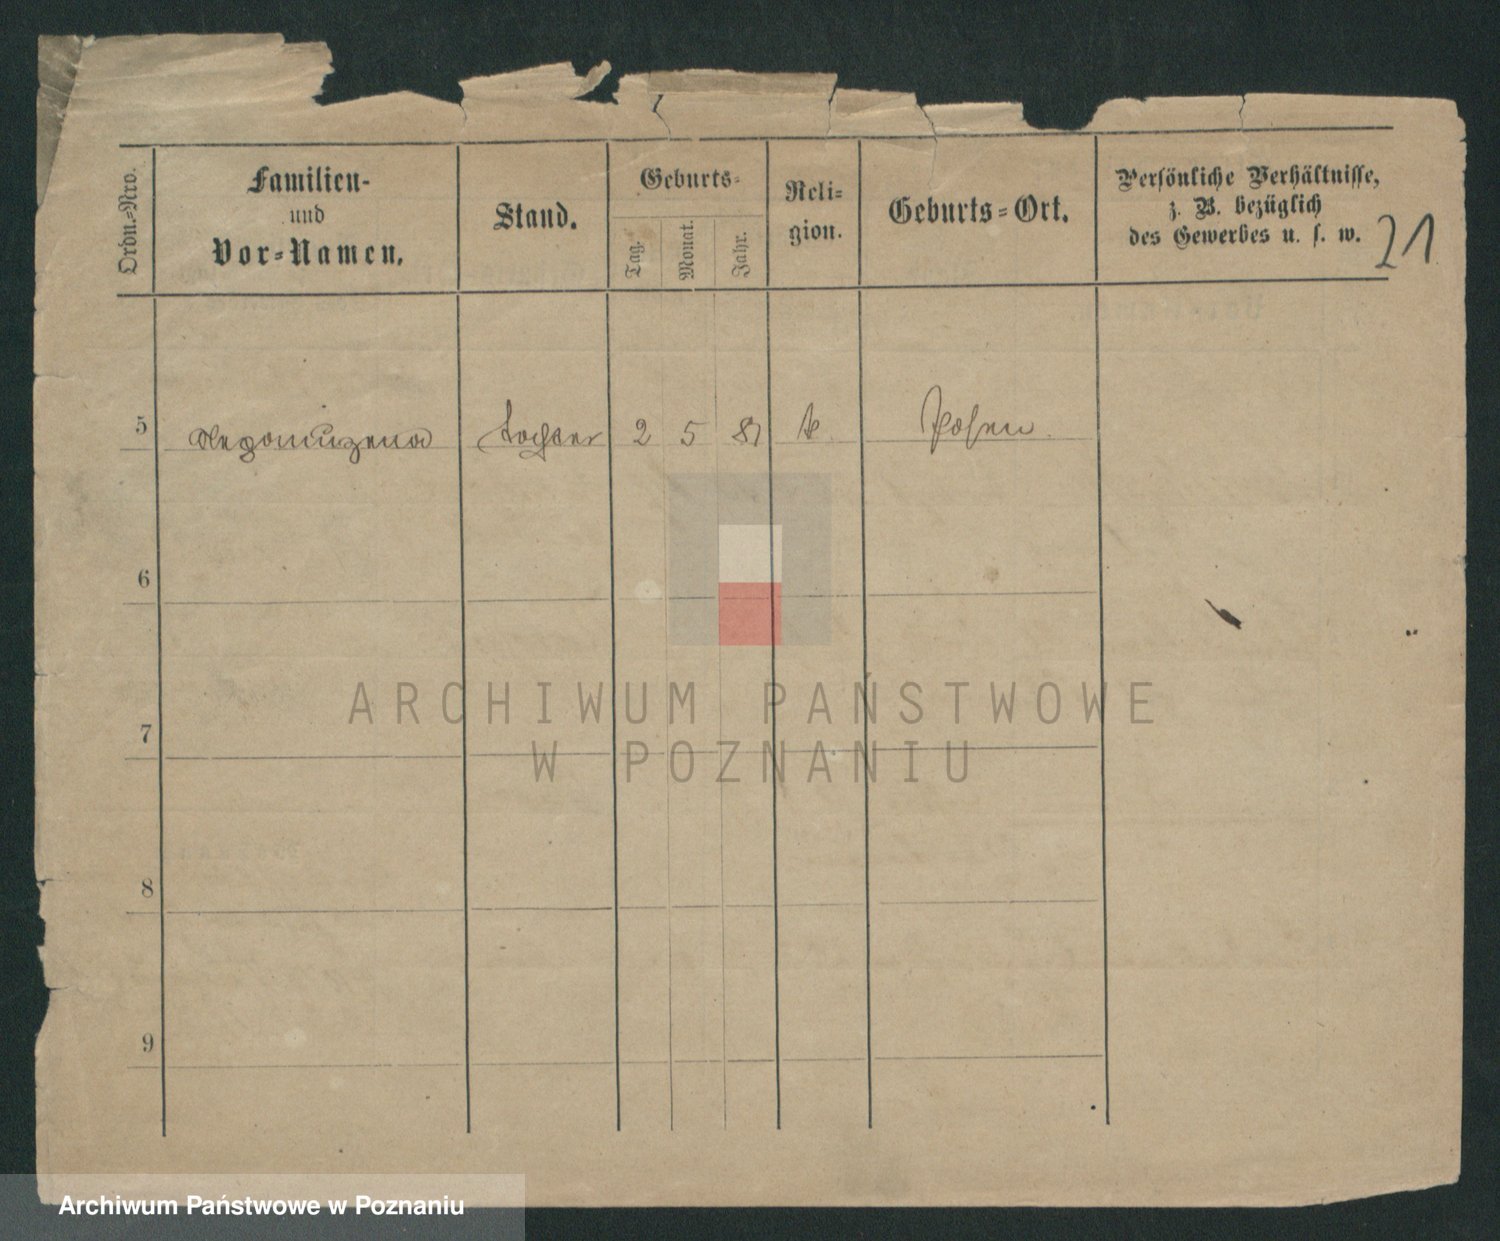 Ordn.=Nro.
Familien-
und
Vor=Namen.
Stand.
Geburts=
Tag.
Monat.
Jahr.
Reli=
gion.
Geburts=Ort.
Persönliche Verhältnisse,
z. B. bezüglich
des Gewerbes u. s. w.
21
5 Tochter 2 5 81 Posen
6
7
8
9
ARCHIWUM PAŃSTWOWE
W POZNANIU
Archiwum Państwowe w Poznaniu